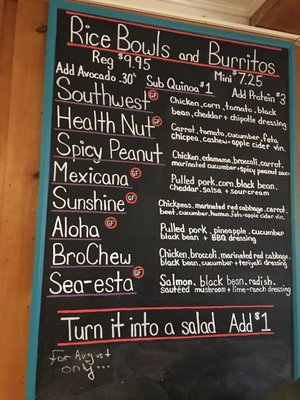 Rice Bowls and Burritos
Reg $9.95
Mini $7.25
Add Avocado .30¢
Sub Quinoa $1
Add Protein $3
Southwest GF
Chicken, corn, tomato, black
bean, cheddar + chipotle dressing
Health Nut GF
Carrot, tomato, cucumber, feta,
chicpea, cashew + apple cider vin.
Spicy Peanut
Chicken, edamame, broccoli, carrot,
marinated cucumber + spicy peanut sauce
Mexicana GF
Pulled pork, corn, black bean,
cheddar, salsa + sourcream
Sunshine GF
Chickpeas, marinated red cabbage, carrot,
beet, cucumber, hummus, feta + apple cider vin.
Aloha GF
Pulled pork, pineapple, cucumber
black bean + BBQ dressing
BroChew
Chicken, broccoli, marinated red cabbage,
black bean, cucumber + teriyaki dressing
Sea-esta GF
Salmon, black bean, radish,
sauteed mushroom + lime-ranch dressing
Turn it into a salad Add $1
for August
only...